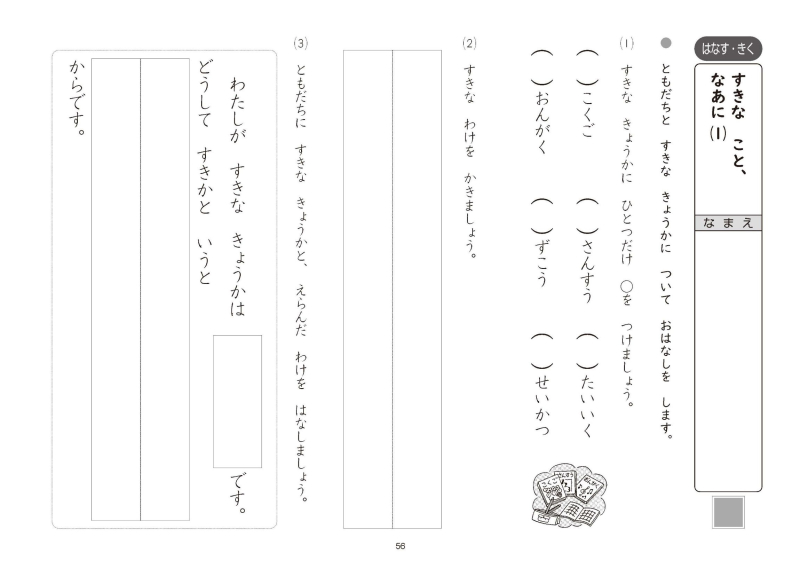 はなす・きく
すきな こと、
なあに(1)
なまえ
● ともだちと すきな きょうかに ついて おはなしを します。
(1) すきな きょうかに ひとつだけ ○を つけましょう。
( )こくご ( )さんすう ( )たいいく
( )おんがく ( )ずこう ( )せいかつ
こくご
さんすう
おんがく
(2) すきな わけを かきましょう。
(3) ともだちに すきな きょうかと、 えらんだ わけを はなしましょう。
わたしが すきな きょうかは です。
どうして すきかと いうと
からです。
56